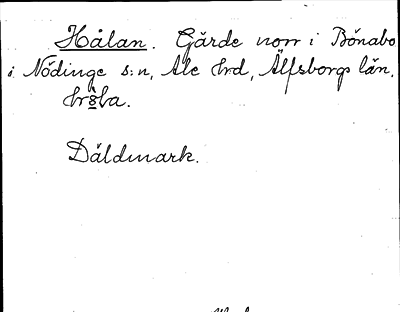 Hålan. Gärde norr i Bönabo
i Nödinge s:n, Ale hrd, Älfsborgs län.
Däldmark.